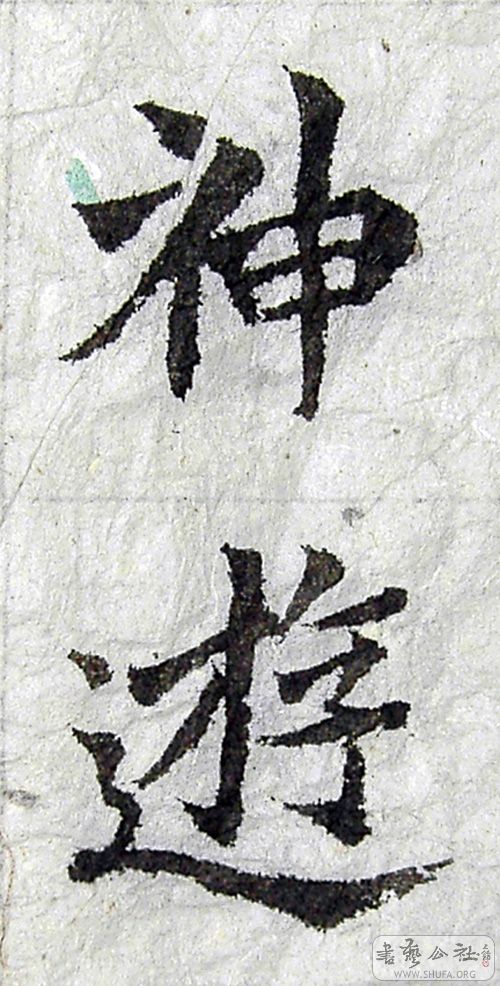 神遊
書藝公社
WWW.SHUFA.ORG